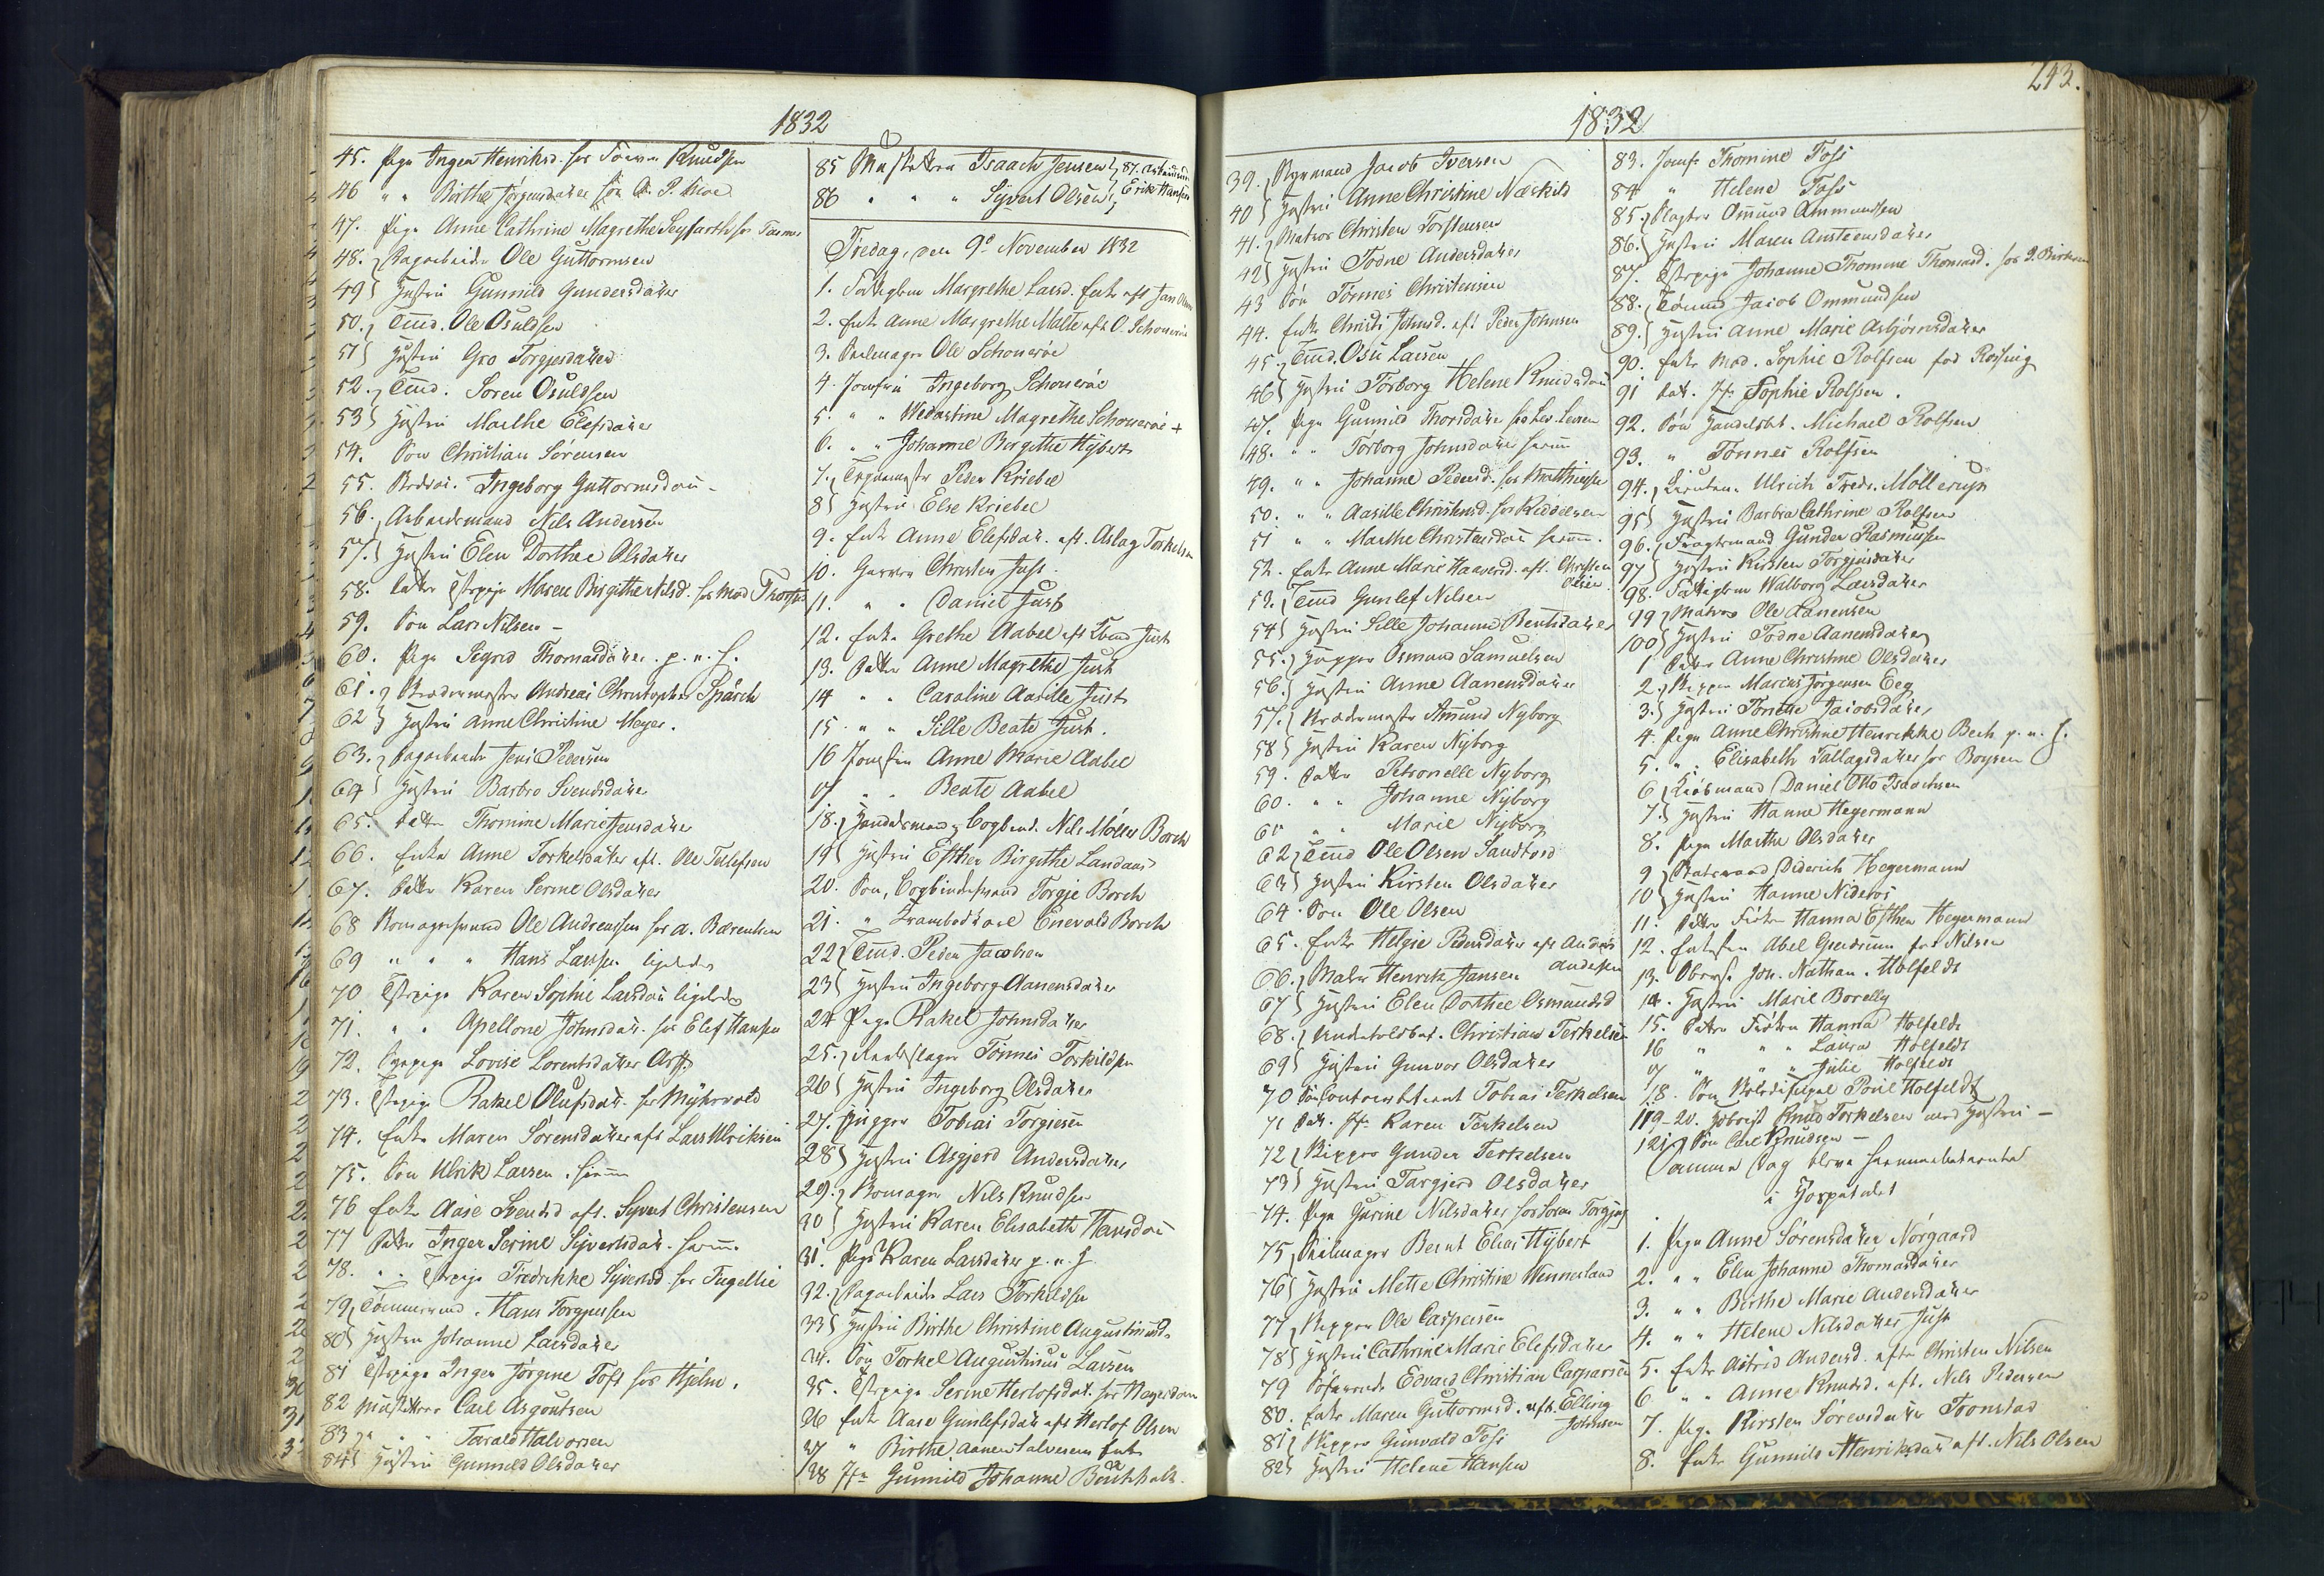 1832
45. Pige Ingea Henriksd. hos Knudsen
46 " " Birthe Jørgensdatter hos
47. Pige Anne Cathrine Magrethe Seyfarth hos
48. Dagarbeider Ole Guttormsen
49 Hustru Gunnild Gundersdatter
50. Tmd. Ole Osuldsen
51 Hustru Gro Torgjersdatter
52. Tmd. Soren Osuldsen
53 Hustru Marthe Elefsdatter
54. Søn Christian Sörensen
55. Ingeborg Guttormsdatt
56. Arbeidsmand Nils Andersen
57. Hustru Elen Dorthea Olsdatter
58. Datter Tstpige Maren Birgithe Nilsd. hos Mad
59. Søn Lars Nilsen -
60. Pige Sigrid Thomasdatter. p. n. h.
61. Andreas Christopher Spärch
62 Hustru Anne Christine Meyer.
63. Dagarbeider Jens Petersen
64 Hustru Barbro Svendsdatter
65. Datter Thomine Marie Jensdatter
66. Enke Anne Torkelsdatter eft. Ole Tellefsen
67. Datter Karen Serine Olsdatter
68 Ole Andreassen hos A. Bærentsen
69 " " " Hans Larssen ligeledes
70 Tstpige Karen Sophie Larsdatt ligeledes
71. " " Apellone Johnsdatt. hos Elef Hansen
72. Lovise Lorentsdatter
73. Tstpige Rakel Olufsdatt. hos Myhrvold
74. Enke Maren Sørensdatter eft Lars Ulriksen
75. Søn Ulrik Larsen.
76 Enke Aase Svendsd eft. Syvert Christensen
77 Datter Inger Serine Syvertsdatt.
78. " " Tstpige Fredrikke Syvertsd. hos
79 Tømmermd. Hans Torgjussen
80 Hustru Johanne Larsdatter
81 Tstpige Inger Jørgine Toft hos Hjelm.
82 Musketteer Carl Asgoutsen
83 " " Tarald Halvorsen
84 Hustru Gunnild Olsdatter
85 Musketteer Isaach Jensen 87.
86 " " " Syvert Olsen Erik Hansen
Fredag, den 9de November 1832
1. Fattiglem Margrethe Larsd. Enke eft Jan
2. Enke Anne Margrethe Malte eft O. Schouerøe
3. Seilmager Ole Schouerøe
4. Jomfru Ingeborg Schouerøe
5. " " Wedastine Magrethe Schouerøe +
6. " " Johanne Birgitte Hybert
7. Peder Kriebel
8 Hustru Else Kriebel
9. Enke Anne Elefsdatt. eft. Aslag Torkelsen
10. Garver Christen Just.
11. " " Daniel Just
12. Enke Grethe Aabel eft Just
13. Datter Anne Magrethe Just
14 " " Caroline Aasille Just
15. " " Sille Beate Just.
16 Jomfru Anne Marie Aabel
17 " " Beate Aabel
18. Handelsmand & Bogbind. Nils Möller Borch
19 Hustru Esther Birgithe Landaas
20. Søn, Bogbindersvend Torgje Borch
21. " Enevold Borch
22 Tmd. Peder Jacobsen
23 Hustru Ingeborg Aanensdatter
24 Pige Rakel Johnsdatter
25. Tönnes Torkildsen
26 Hustru Ingeborg Olsdatter
27. Tobias Torgiesen
28 Hustru Asgjerd Andersdatter
29. Nils Knudsen
30 Hustru Karen Elisabeth Hansdatt
31. Pige Karen Larsdatter p. n. h
32. Dagarbeider Lars Torkildsen
33 Hustru Birthe Christine Augustinusd.
34. Søn Torkel Augustinus Larsen
35. Tstpige Serine Herlofsdat. hos
36 Enke Aase Gunlefsdatt eft Herlof Olsen
37 " Birthe
38 Jfr Gunnild Johanne
1832
243.
39. Jacob Iversen
40 Hustru Anne Christine Næskild
41. Matros Christen Torstensen
42 Hustru Todne Andersdatter
43 Søn Tönnes Christensen
44. Enke Christi Johnsd. eft Peder Johnsen
45. Tmd. Osu Larsen
46 Hustru Torborg Helene Knudsdatt
47. Pige Gunnild Thorsdatter hos
48. " " Torborg Johnsdatter
49. " " Johanne Pedersd. hos Matthiesen
50. " " Aasille Christensd. hos
51 " " Marthe Christensdatt
52. Enke Anne Marie Haavorsd. eft. Christen Olsen
53. Tmd Gunlef Nilsen
54 Hustru Sille Johanne Berntsdatter
55. Osmund Samuelsen
56. Hustru Anne Aanensdatter
57. Amund Nyborg
58 Hustru Karen Nyborg
59. Datter Petronelle Nyborg
60. " " Johanne Nyborg
61 " " Marie Nyborg
62 Tmd Ole Olsen Sandtord
63 Hustru Kirsten Olsdatter
64. Søn Ole Olsen
65. Enke Helgie Pedersdatter eft Anders Andersen
66. Maler Henrik Jansen
67 Hustru Elen Dorthee Osmundsd
68. Christian Terkelsen
69 Hustru Gunvor Olsdatter
70 Søn Tobias Terkelsen
71 Dat. Jfr. Karen Terkelsen
72 Skipper Gunder Terkelsen
73 Hustru Targjerd Olsdatter
74. Pige Gurine Nilsdatter hos Soren
75. Seilmager Bernt Elias Hybert
76 Hustru Mette Christine Wennerland
77 Skipper Ole Caspersen
78 Hustru Cathrine Marie Elefsdatter
79 Edvard Christian Casparsen
80. Enke Maren Guttormsd. eft. Elling Johnsen
81 Skipper Gunvald Foss
82 Hustru Helene Hansen
83. Jomfr Thomine Foss
84 " Helene Foss
85. Omund Ammundsen
86. Hustru Maren Austeensdatter
87. Tstpige Johanne Thomine Thomasd. hos
88. Tömmd Jacob Ommundsen
89. Hustru Anne Marie Asbjørnsdatter
90. Enke Mad. Sophie Rolfsen fød Rosing
91 Dat. Jfr Sophie Rolfsen.
92. Søn Handelsbt. Michael Rolfsen
93. " Tönnes Rolfsen
94. Lieuten. Ulrich Fredr. Möllerup
95 Hustru Barbra Cathrine Rolfsen
96. Fragtemand Gunder Rasmussen
97 Hustru Kirsten Torgjusdatter
98. Fattiglem Walborg Larsdatter
99 Matros Ole Aanensen
100 Hustru Todne Aanensdatter
1 Datter Anne Christine Olsdatter
2. Skipper Marius Jørgensen Eeg
3. Hustru Jacobsdatter
4. Pige Anne Christine Henrikke Bech p. n. h.
5. " " Elisabeth Tallagsdatter hos Boysen
6 Kiøbmand Daniel Otto Isaachsen
7. Hustru Hanne Hegermann
8. Pige Marthe Olsdatter
9 Diderich Hegermann
10 Hustru Hanne Nideros
11. Datter Frøken Hanna Esther Hegermann
12. Abel fød Nilsen
13. Oberst Joh. Nathan. Holfeldt
14. Hustru Marie Borelly
15. Datter Frøken Hanna Holfeldt
16 " " " Laura Holfeldt
17 " " " Julie Holfeldt
18. Søn Poul Holfeldt
119-20. Knud Torkelsen med Hustru -
121 Søn Carl Knudsen -
Samme Dag bleve
i Hospitalet
1. Pige Anne Sørensdatter Nørgaard
2. " " Elen Johanne Thomasdatter
3. " " Birthe Marie Andersdatter
4. " " Helene Nilsdatter Just
5. Enke Astrid Andersd. efter Christen Nilsen
6 " " Anne Knudsd. eft. Nils Pedersen
7. Pige Kirsten Sörensdatter Tronstad
8. Enke Gunnild Henriksdatt eft. Nils Olsen